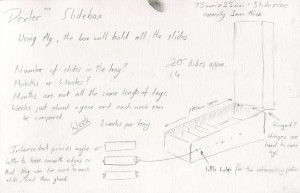 Dexter™ Slidebox
75mm x 25mm - Slide size
normally 1mm thick
Using Ply, the box will hold all the slides.
Number of slides in the tray?
Months or Weeks?
Months are not all the same length of days.
Weeks just about agree and each week can
be compared.
20 slides approx.
14
Week
2 weeks per tray
Intersected pieces angle
to have smooth edges so
that they can be next to each
slide, and then glued.
hinged?
hinges are
hard to come
by!
little ledge for the intersecting plates